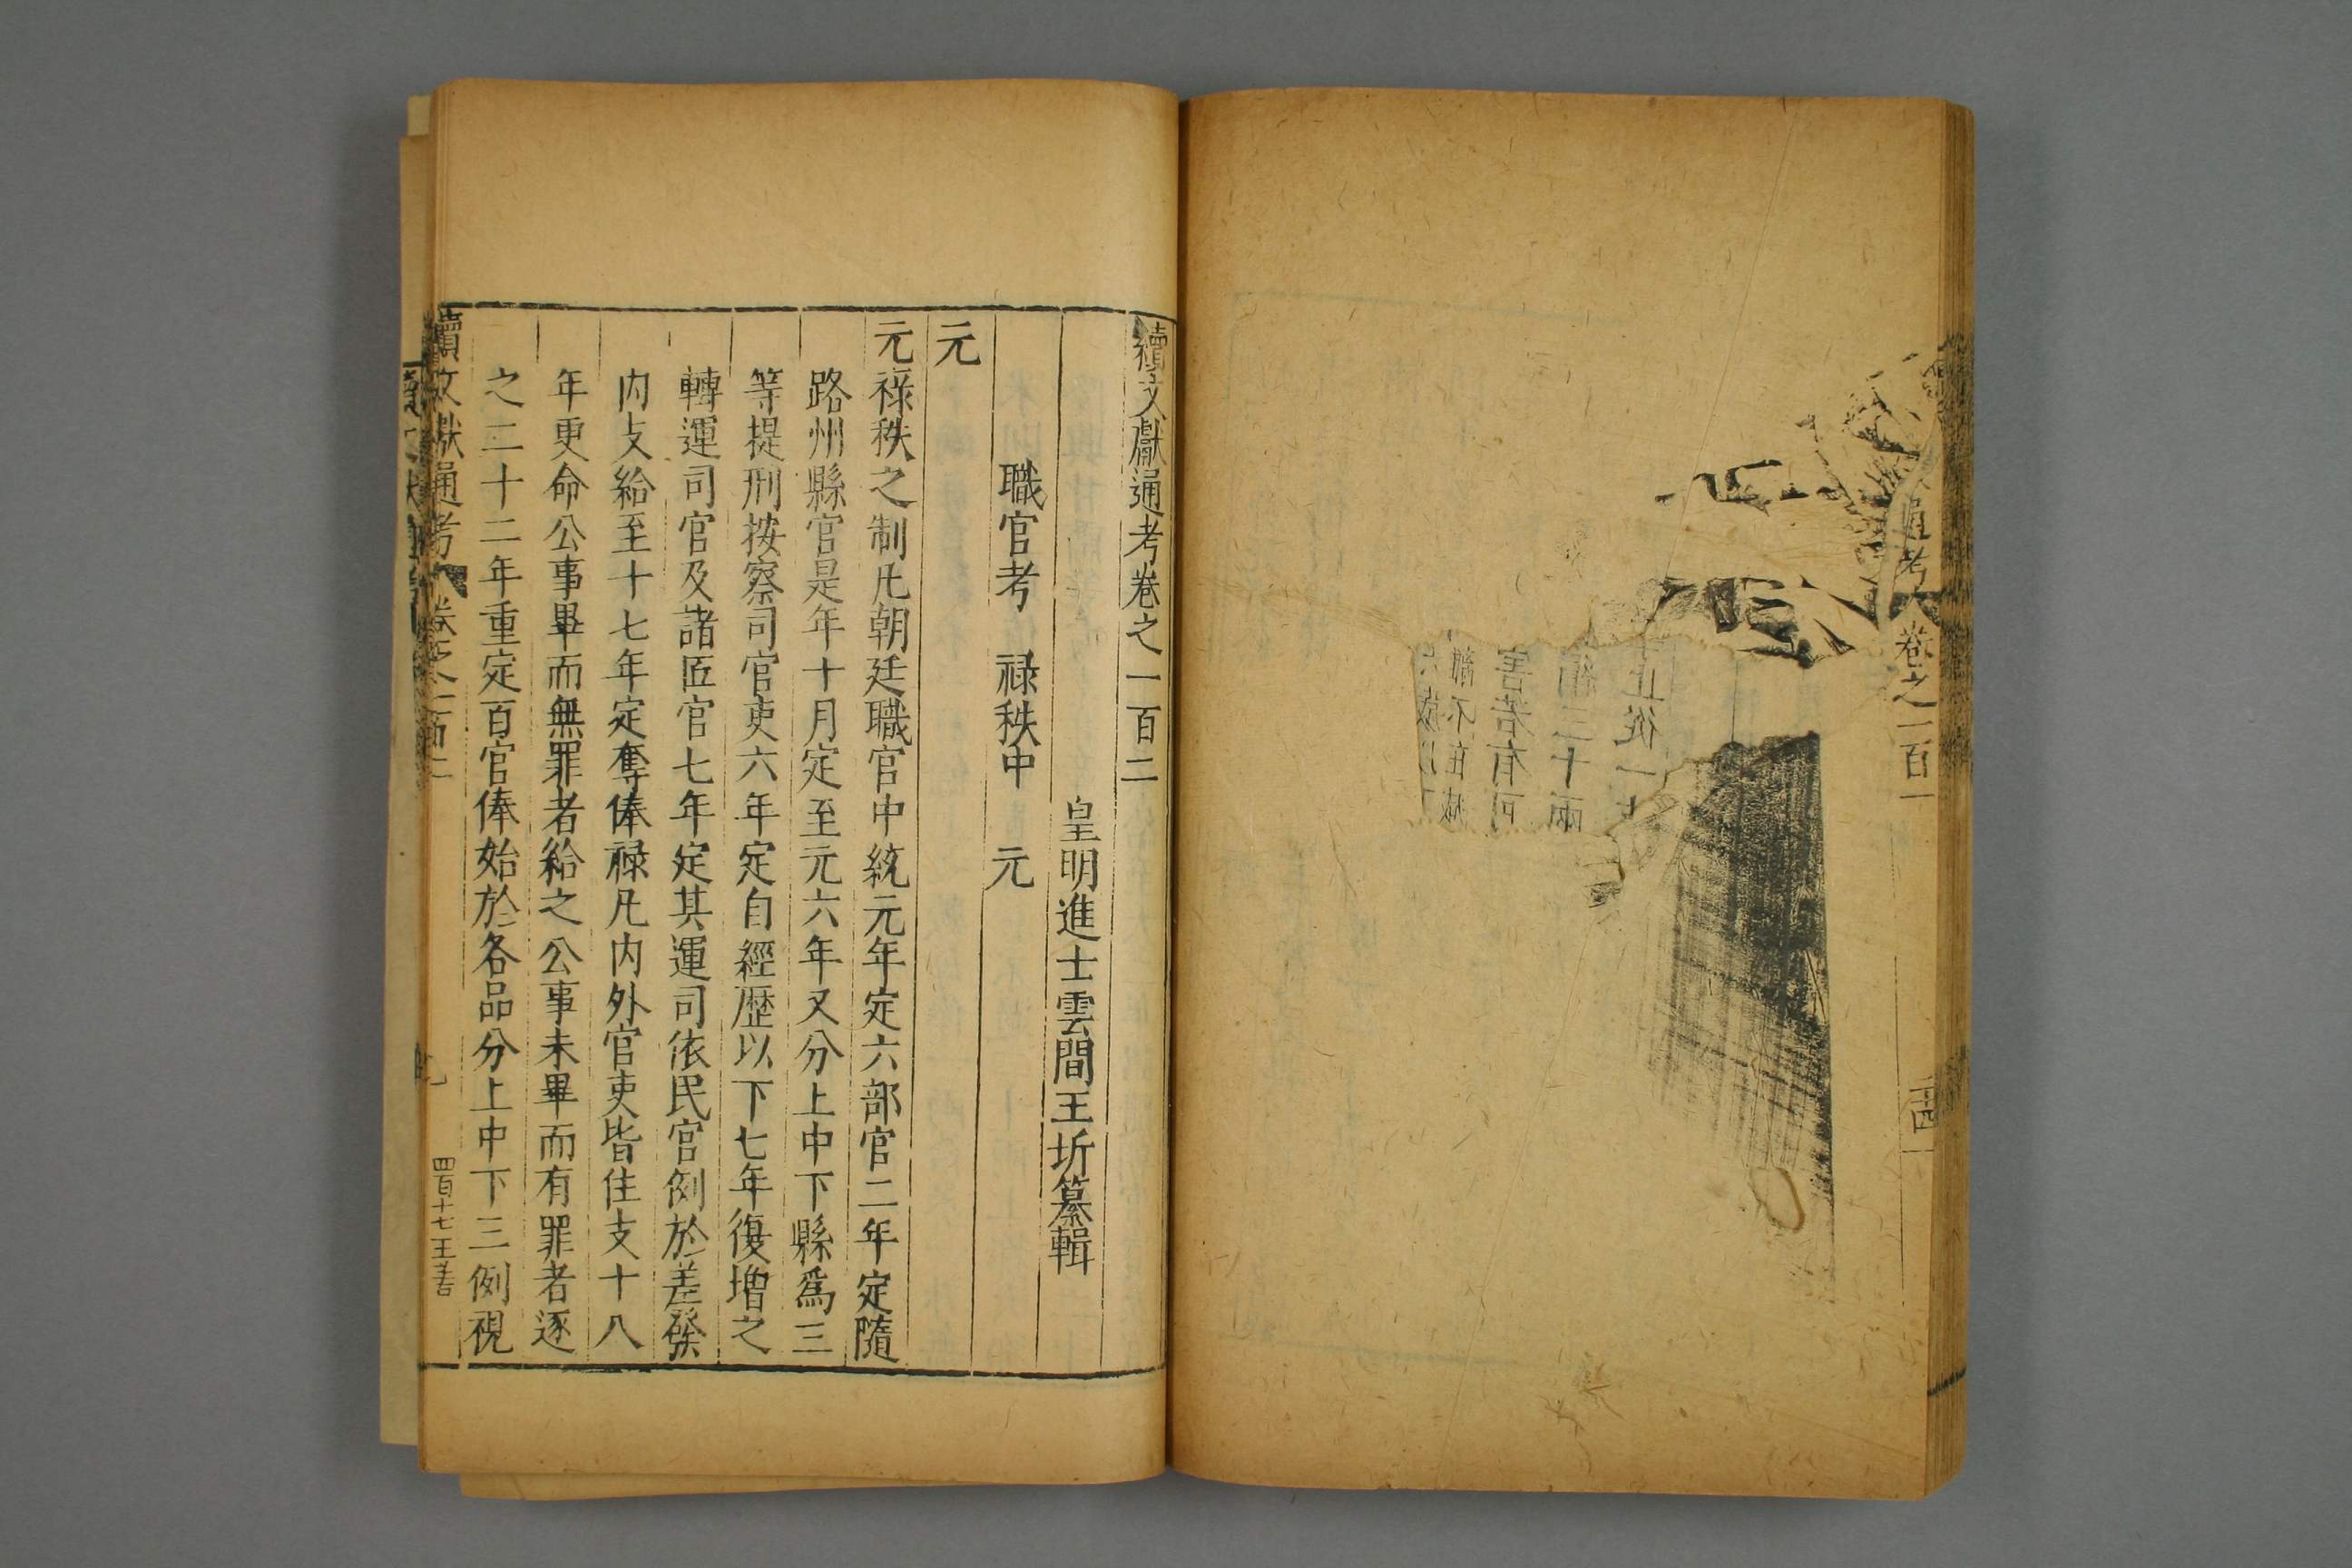 通考
卷之一百一
止從一
三十兩
害若有司
不在
續文獻通考卷之一百二
皇明進士雲間王圻纂輯
職官考 祿秩中 元
元
元祿秩之制凡朝廷職官中統元年定六部官二年定隨
路州縣官是年十月定至元六年又分上中下縣爲三
等提刑按察司官吏六年定自經歷以下七年復增之
轉運司官及諸匠官七年定其運司依民官例於差發
内支給至十七年定奪俸祿凡内外官吏皆住支十八
年更命公事畢而無罪者給之公事未畢而有罪者逐
之二十二年重定百官俸始於各品分上中下三例視
續文獻通考 卷之一百二
四百十七王